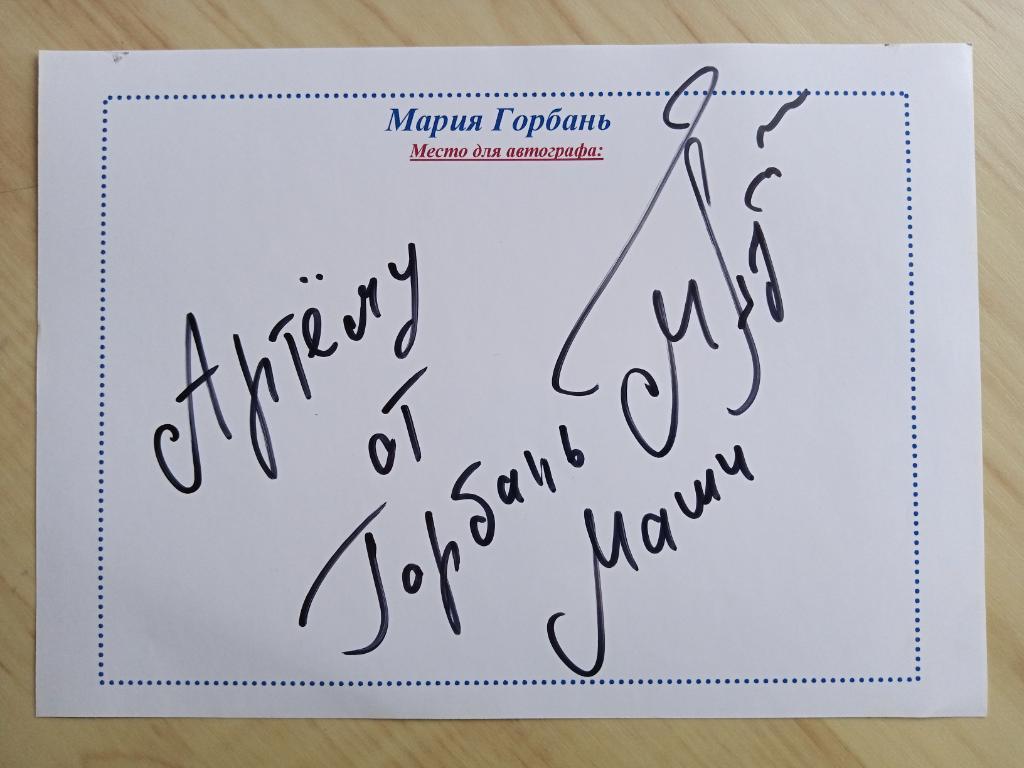 Мария Горбань
Место для автографа:
Артёму
от
Горбань
Маши